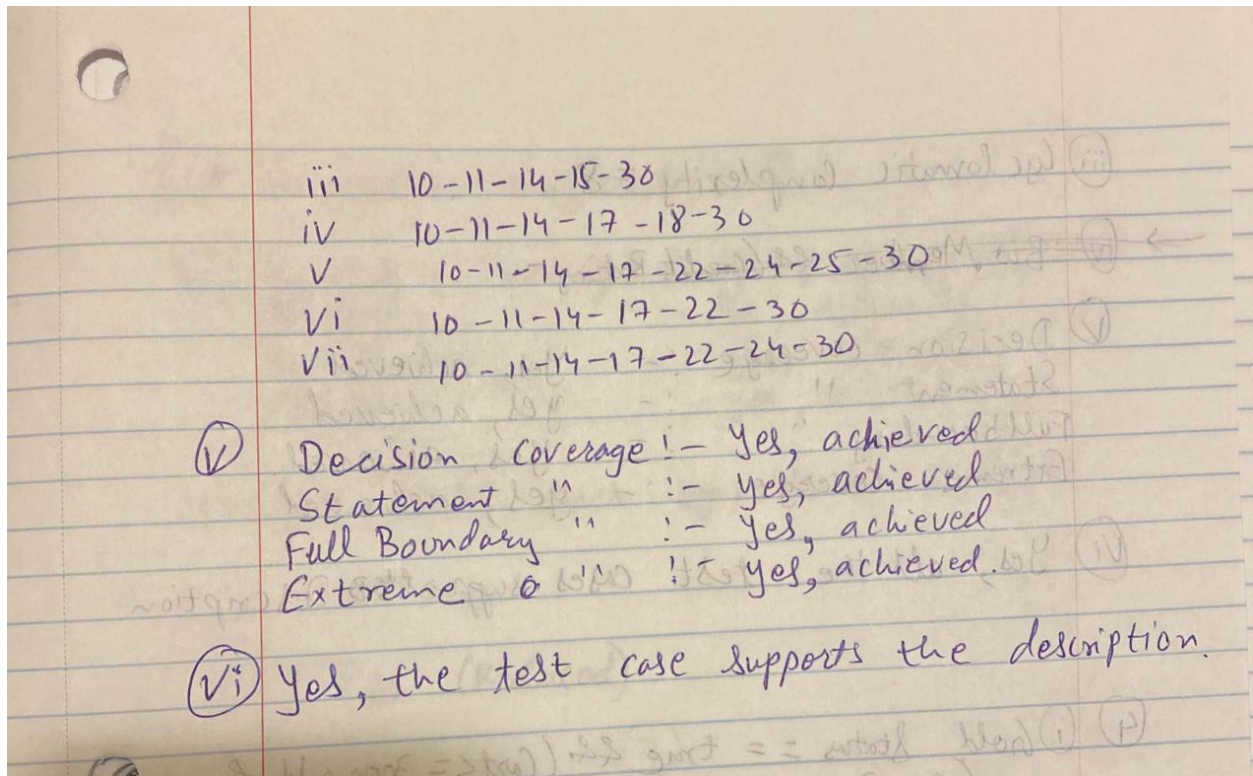 iii 10-11-14-15-30
iv 10-11-14-17-18-30
v 10-11-14-17-22-24-25-30
vi 10-11-14-17-22-30
vii 10-11-14-17-22-24-30
v Decision coverage :- Yes, achieved
Statement " :- yes, achieved
Full Boundary " :- yes, achieved
Extreme " :- yes, achieved.
vi Yes, the test case supports the description.